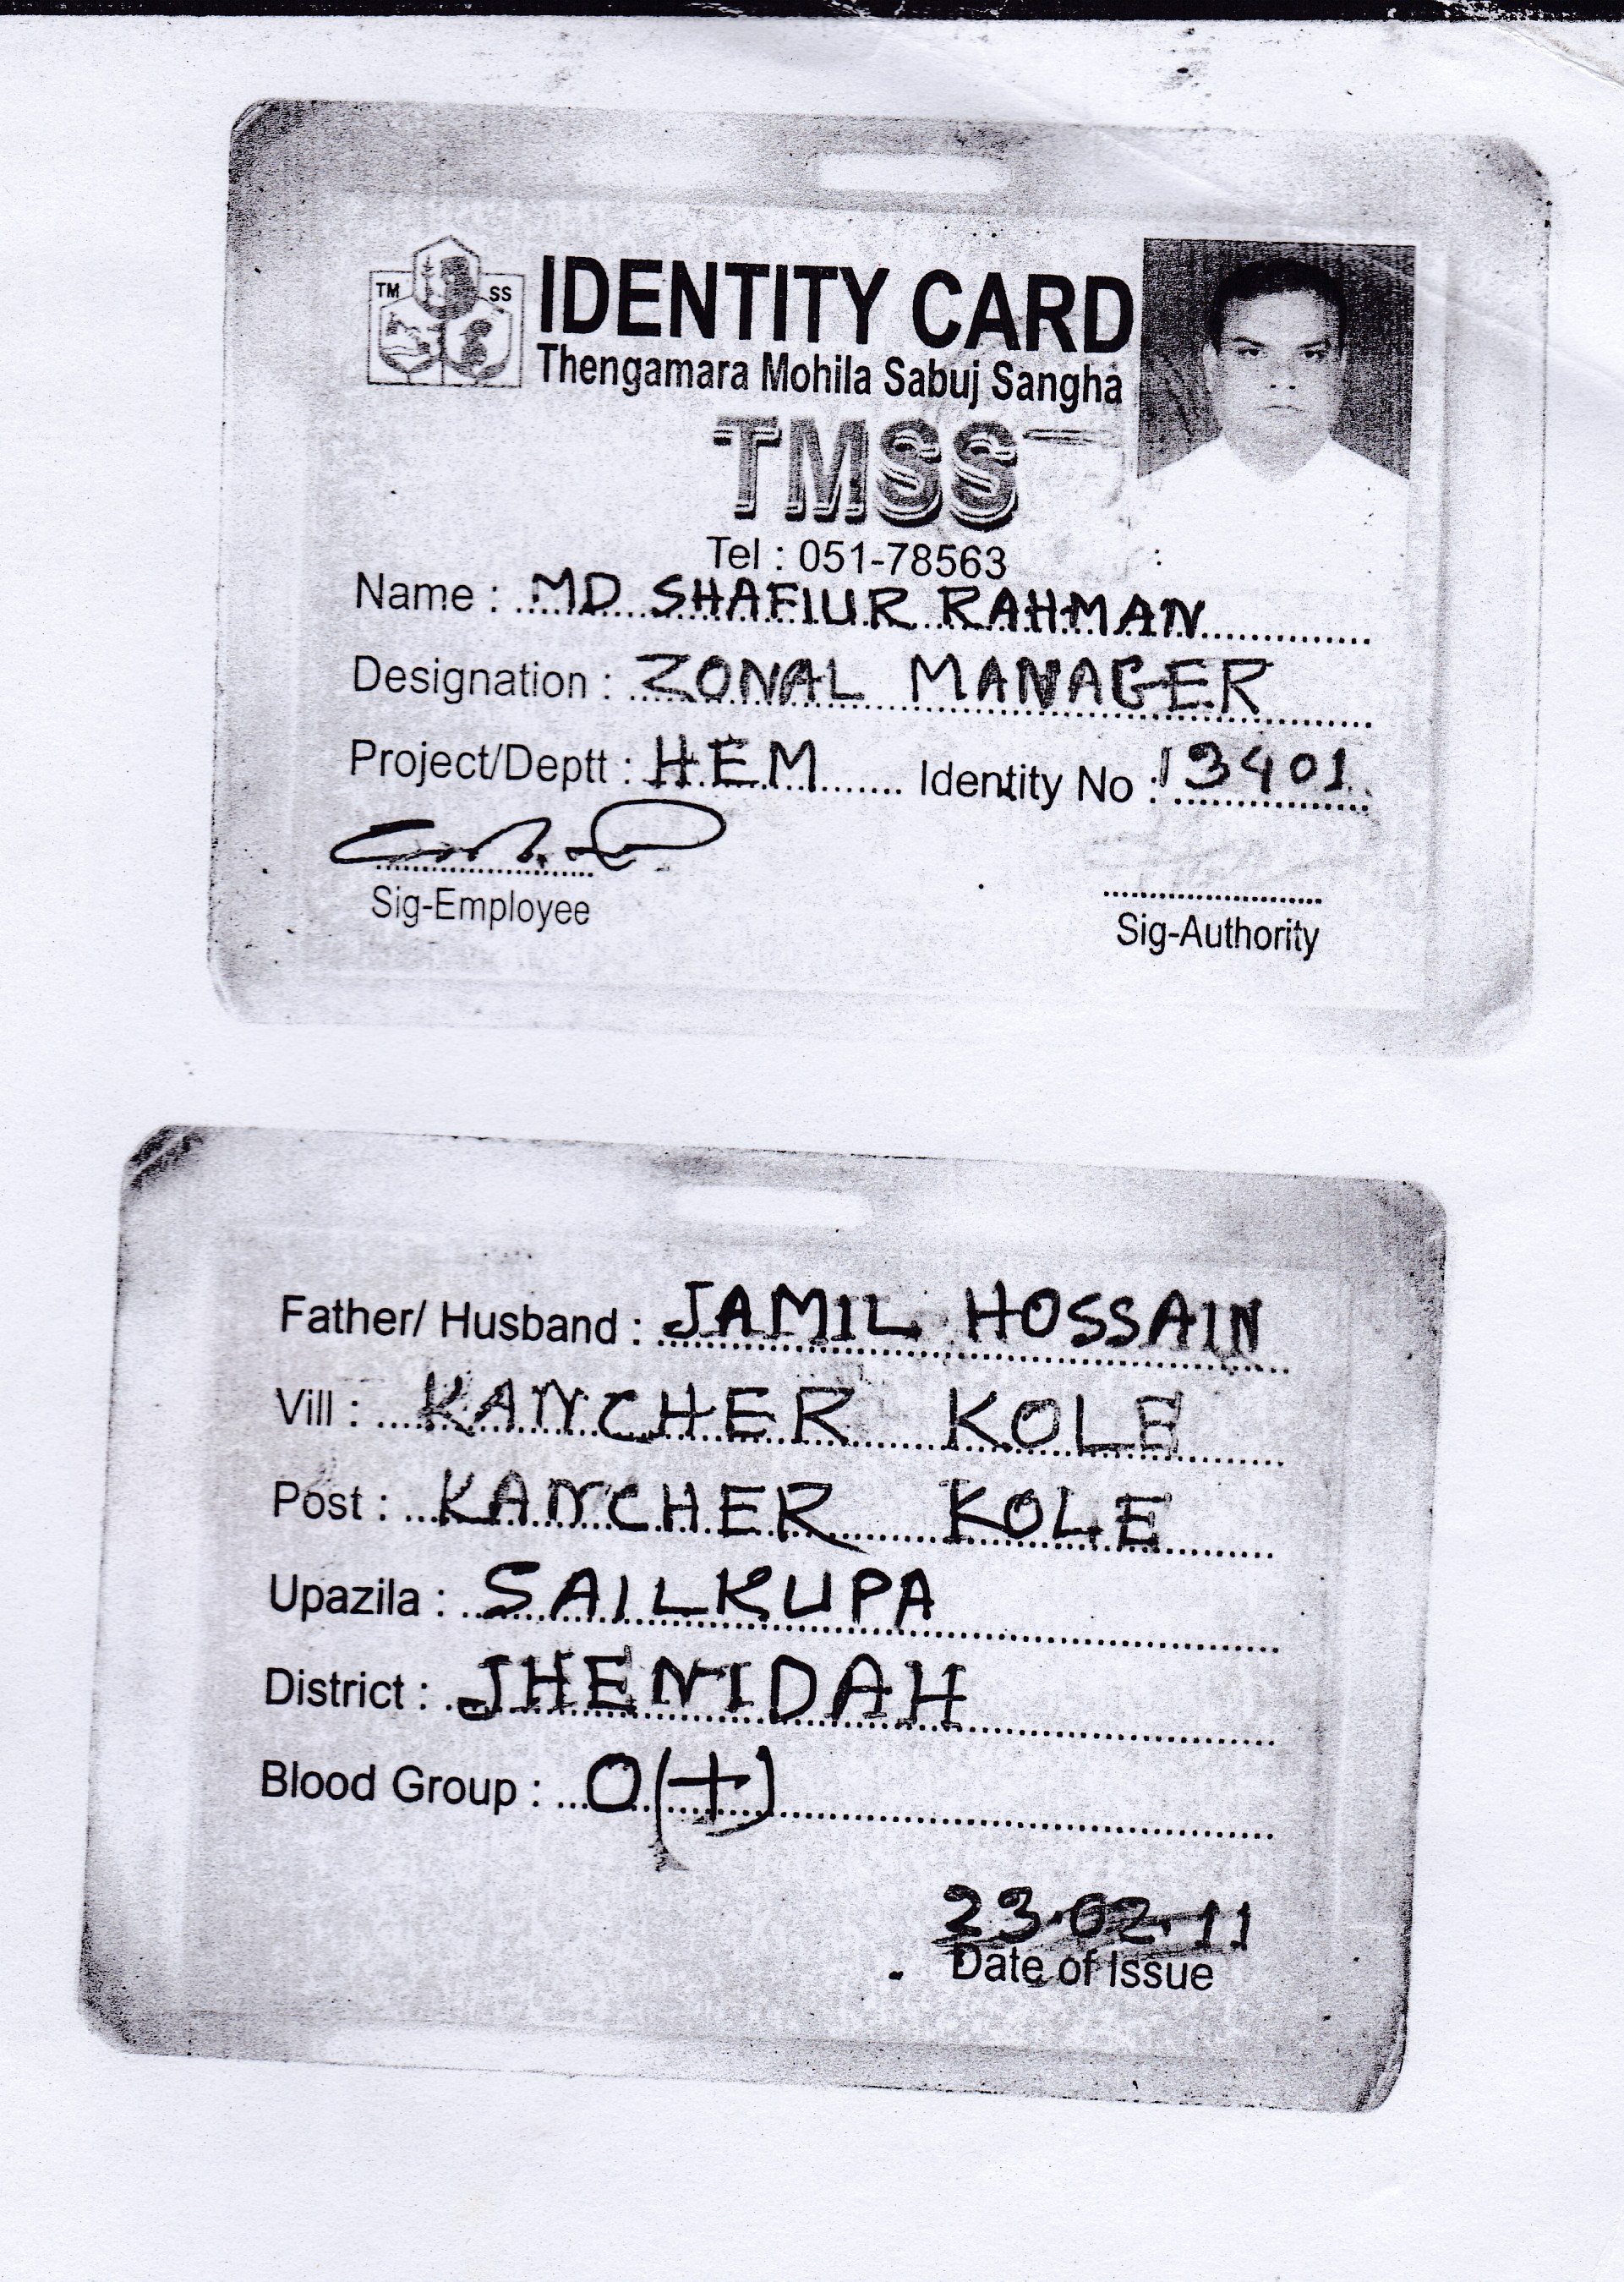 TM SS
IDENTITY CARD
Thengamara Mohila Sabuj Sangha
TMSS
Tel : 051-78563
Name : MD SHAFIUR RAHMAN
Designation : ZONAL MANAGER
Project/Deptt : HEM Identity No : 13401
Sig-Employee
Sig-Authority
Father/ Husband : JAMIL HOSSAIN
Vill : KANCHER KOLE
Post : KANCHER KOLE
Upazila : SAILKUPA
District : JHENIDAH
Blood Group : O(+)
23.02.11
Date of Issue